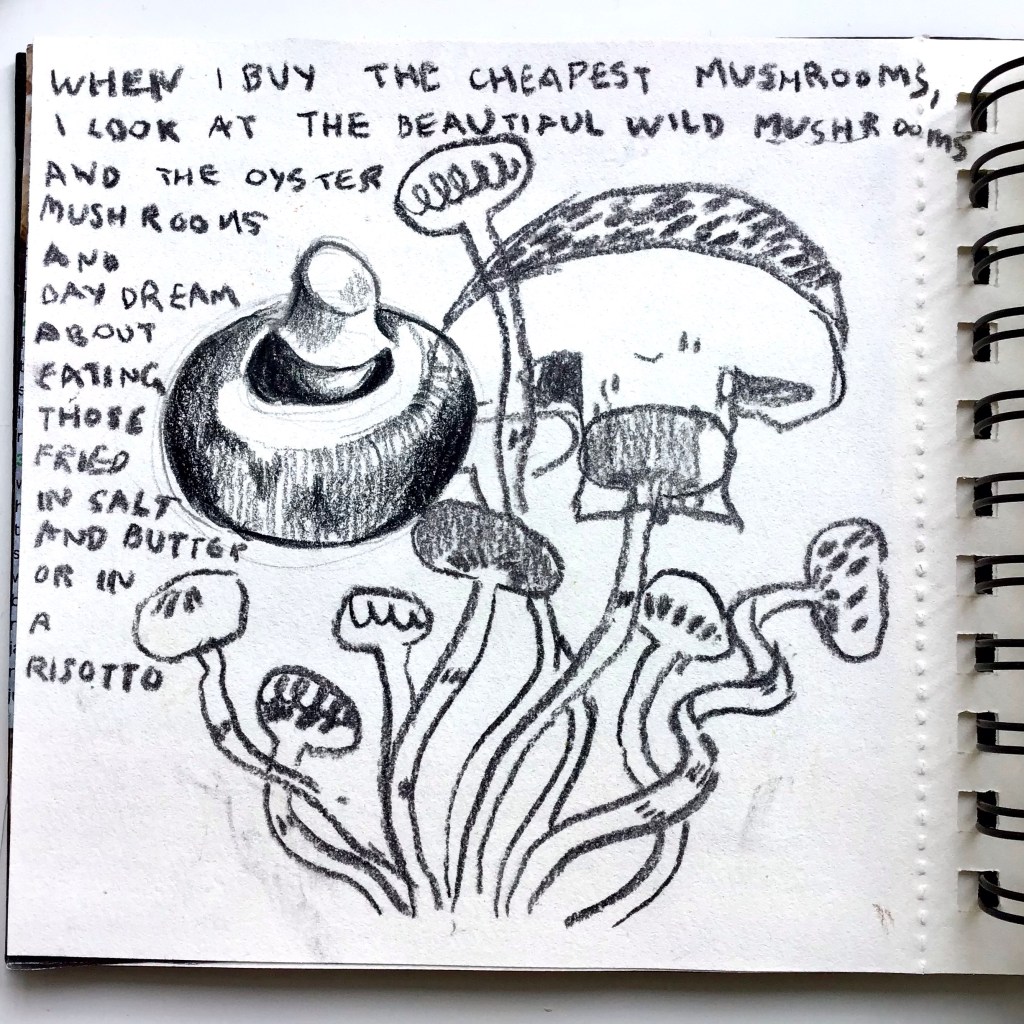 WHEN I BUY THE CHEAPEST MUSHROOMS,
I LOOK AT THE BEAUTIFUL WILD MUSHROOMS
AND THE OYSTER
MUSHROOMS
AND
DAY DREAM
ABOUT
EATING
THOSE
FRIED
IN SALT
AND BUTTER
OR IN
A
RISOTTO